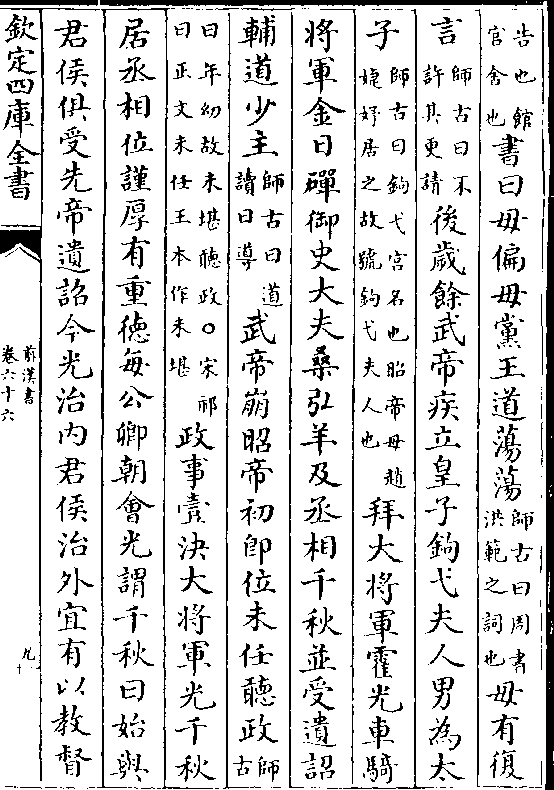 告也館官舍也書曰毋偏毋黨王道蕩蕩師古曰周書洪範之詞也毋有復
言師古曰不許其更請後歲餘武帝疾立皇子鉤弋夫人男為太
子師古曰鉤弋宮名也昭帝母趙婕妤居之故號鉤弋夫人也拜大將軍霍光車騎
將軍金日磾御史大夫桑弘羊及丞相千秋並受遺詔
輔道少主師古曰道讀曰導武帝崩昭帝初即位未任聽政師古
曰年幼故未堪聽政○宋祁曰正文未任王本作未堪政事壹決大將軍光千秋
居丞相位謹厚有重德每公卿朝會光謂千秋曰始與
君侯俱受先帝遺詔今光治內君侯治外宜有以教督
欽定四庫全書
前漢書
卷六十六
九